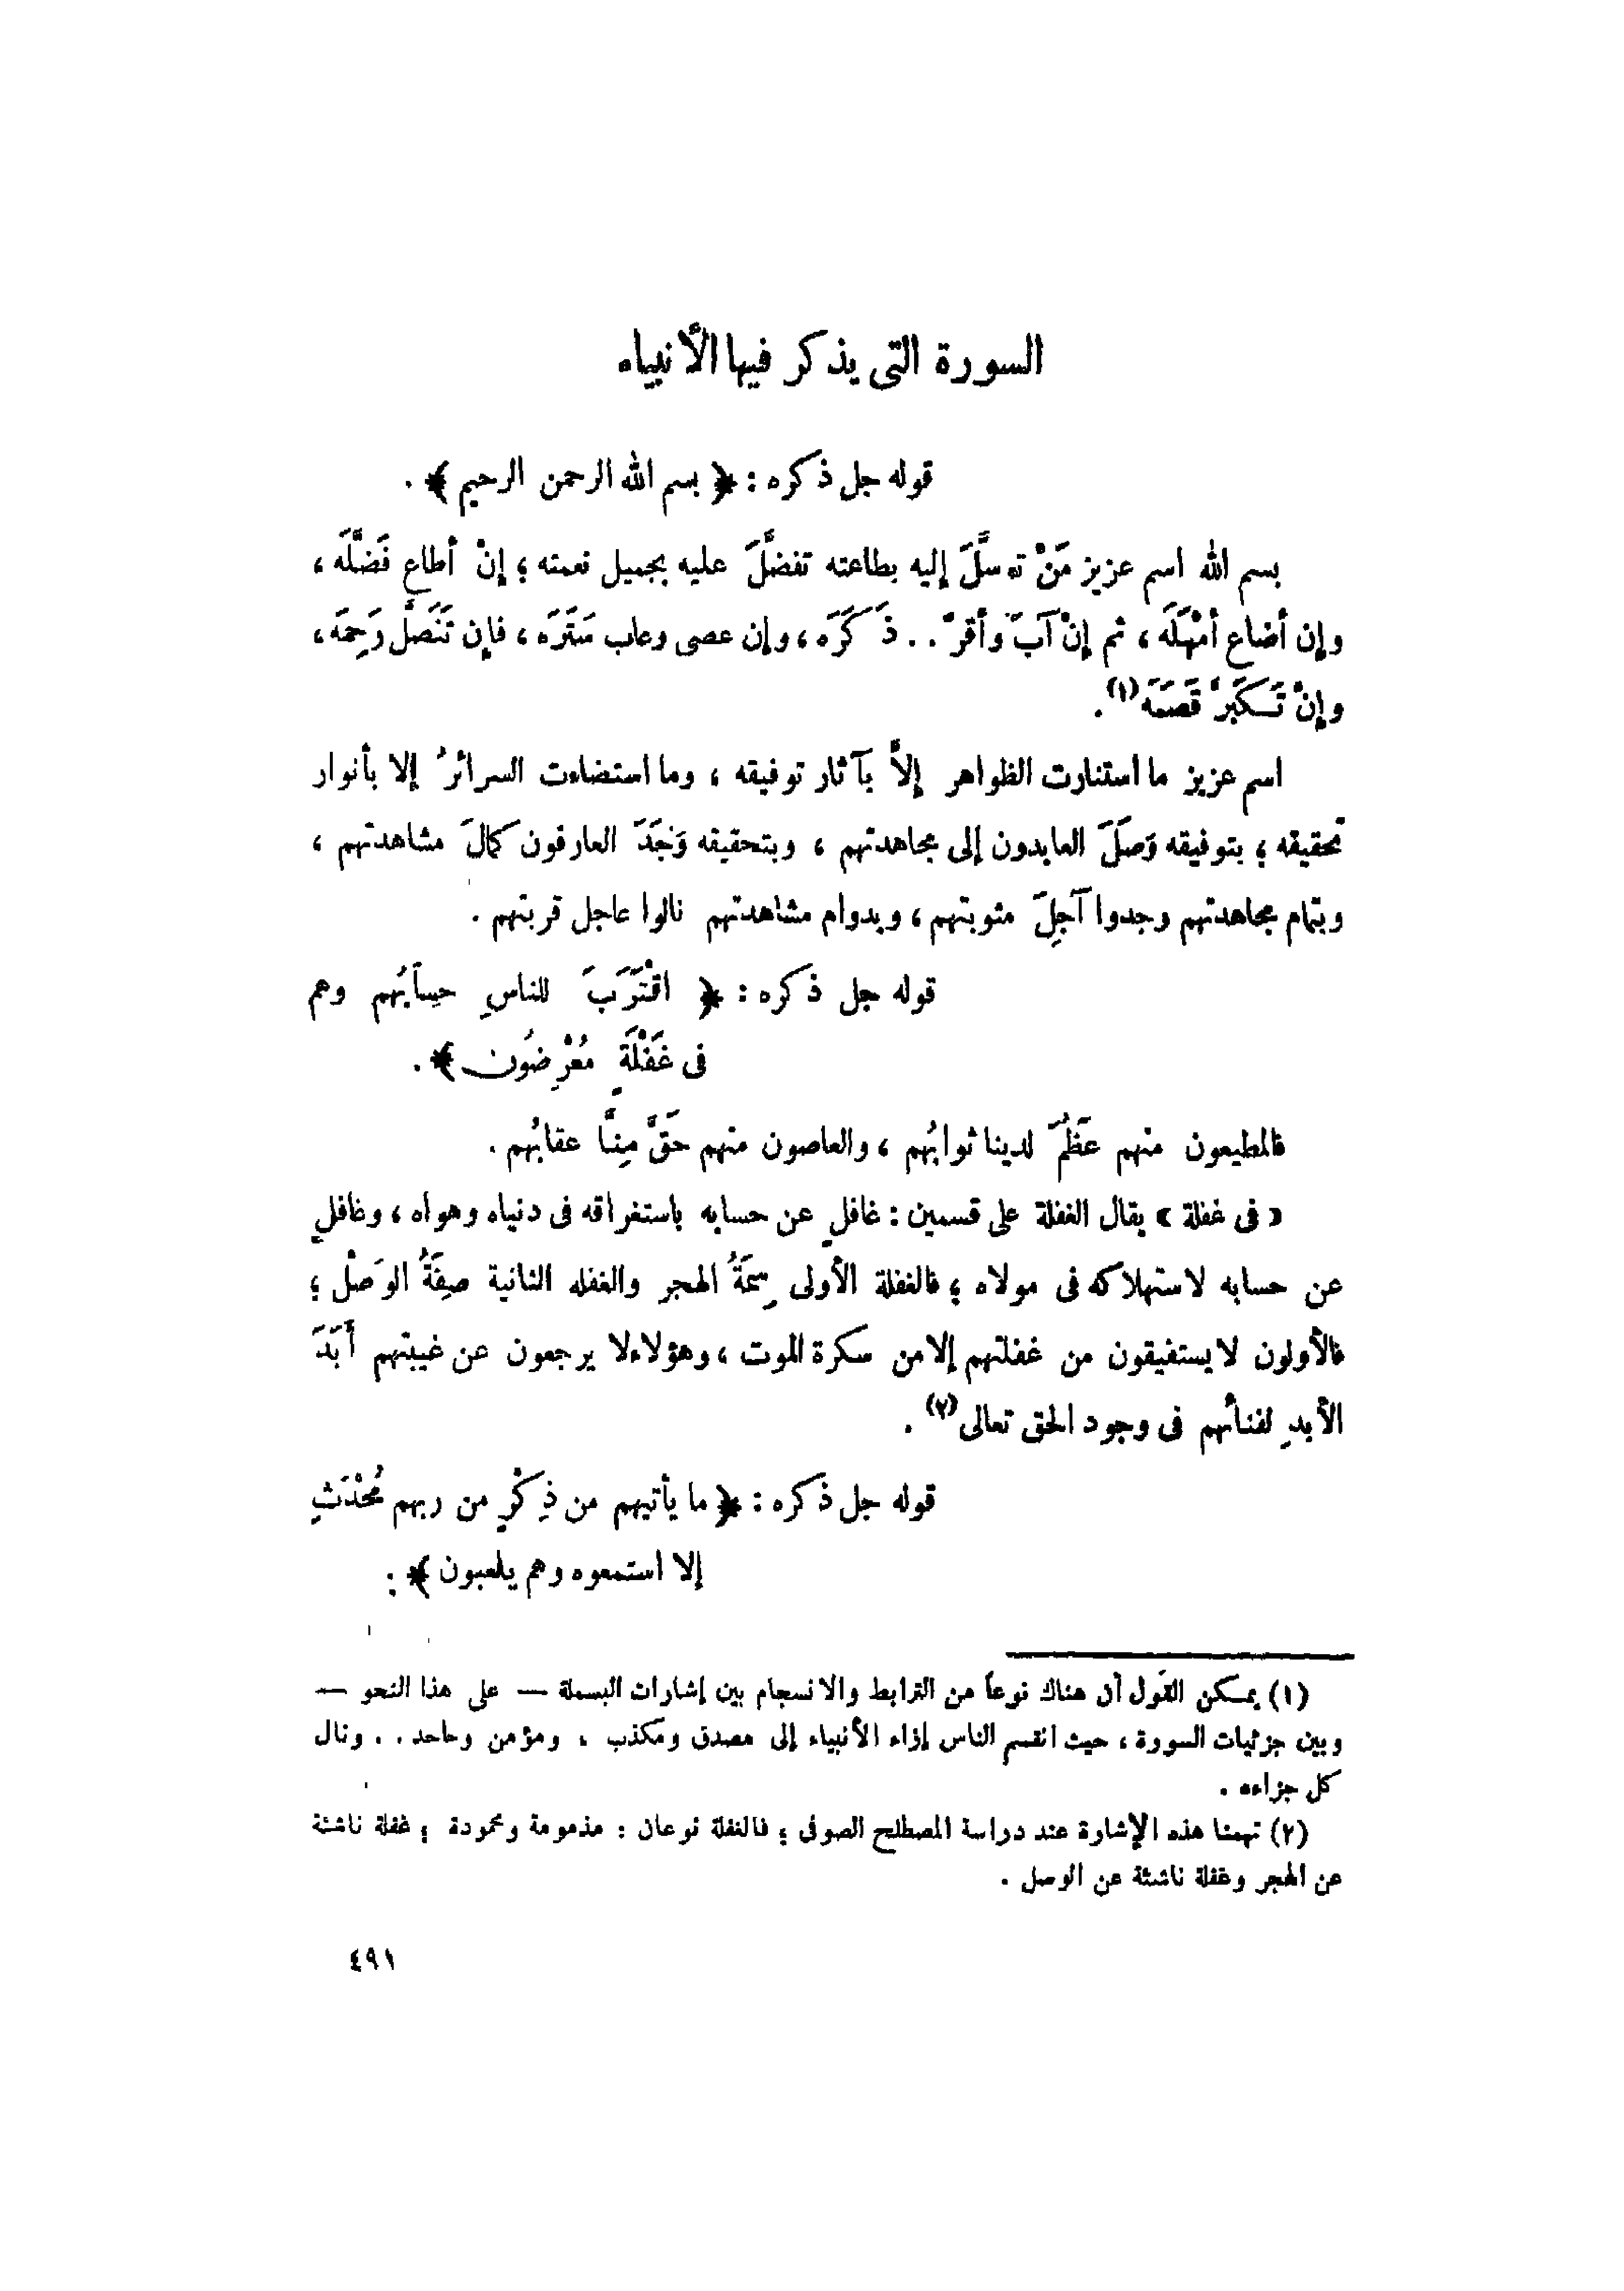 السورة التى يذكر فيها الأنبياء
قوله جل ذكره : ﴿ بسم الله الرحمن الرحيم ﴾ .
بسم الله اسم عزيز مَنْ توسلَّ إليه بطاعته تفضَّلَ عليه بجميل نعمته ؛ إنْ أطاع فَضَّلَه ،
وإن أضاع أمْهَلَه ، ثم إنْ آبَ وأقرَّ . . ذَكَرَه ، وإن عصى وعاب سَتَرَه ، فإن تَنَصَّل رَحِمَه ،
وإنْ تَكَبَّر قَصَمَه (١) .
اسم عزيز ما استنارت الظواهر إلاَّ بآثار توفيقه ، وما استضاءت السرائرُ إلا بأنوار
تحقيقه ؛ بتوفيقه وَصَلَ العابدون إلى مجاهدتهم ، وبتحقيقه وَجَدَ العارفون كمالَ مشاهدتهم ،
وبتمام مجاهدتهم وجدوا آجِلَ مثوبتهم ، وبدوام مشاهدتهم نالوا عاجل قربتهم .
قوله جل ذكره : ﴿ اقْتَرَبَ للناسِ حِسابُهم وهم
فى غَفْلَةٍ مُعْرِضُون ﴾ .
فالمطيعون منهم عَظُمَ لدينا ثوابُهم ، والعاصون منهم حَقَّ مِنَّا عقابُهم .
« فى غفلة » يقال الغفلة على قسمين : غافلٍ عن حسابه باستغراقه فى دنياه وهواه ، وغافلٍ
عن حسابه لاستهلاكه فى مولاه ؛ فالغفلة الأولى سِمَةُ الهجر والغفله الثانية صِفَةُ الوَصْل ؛
فالأولون لا يستفيقون من غفلتهم إلا من سكرة الموت ، وهؤلاء لا يرجعون عن غيبتهم أَبَدَ
الأبدِ لفنائهم فى وجود الحق تعالى (٢) .
قوله جل ذكره : ﴿ ما يأتيهم من ذِكْرٍ من ربهم مُحْدَثٍ
إلا استمعوه وهم يلعبون ﴾ :
(١) يمكن القول أن هناك نوعاً من الترابط والانسجام بين إشارات البسملة — على هذا النحو —
وبين جزئيات السورة ، حيث انقسم الناس إزاء الأنبياء إلى مصدق ومكذب ، ومؤمن وجاحد . . ونال
كل جزاءه .
(٢) تهمنا هذه الإشارة عند دراسة المصطلح الصوفى ؛ فالغفلة نوعان : مذمومة ومحمودة ؛ غفلة ناشئة
عن الهجر وغفلة ناشئة عن الوصل .
٤٩١